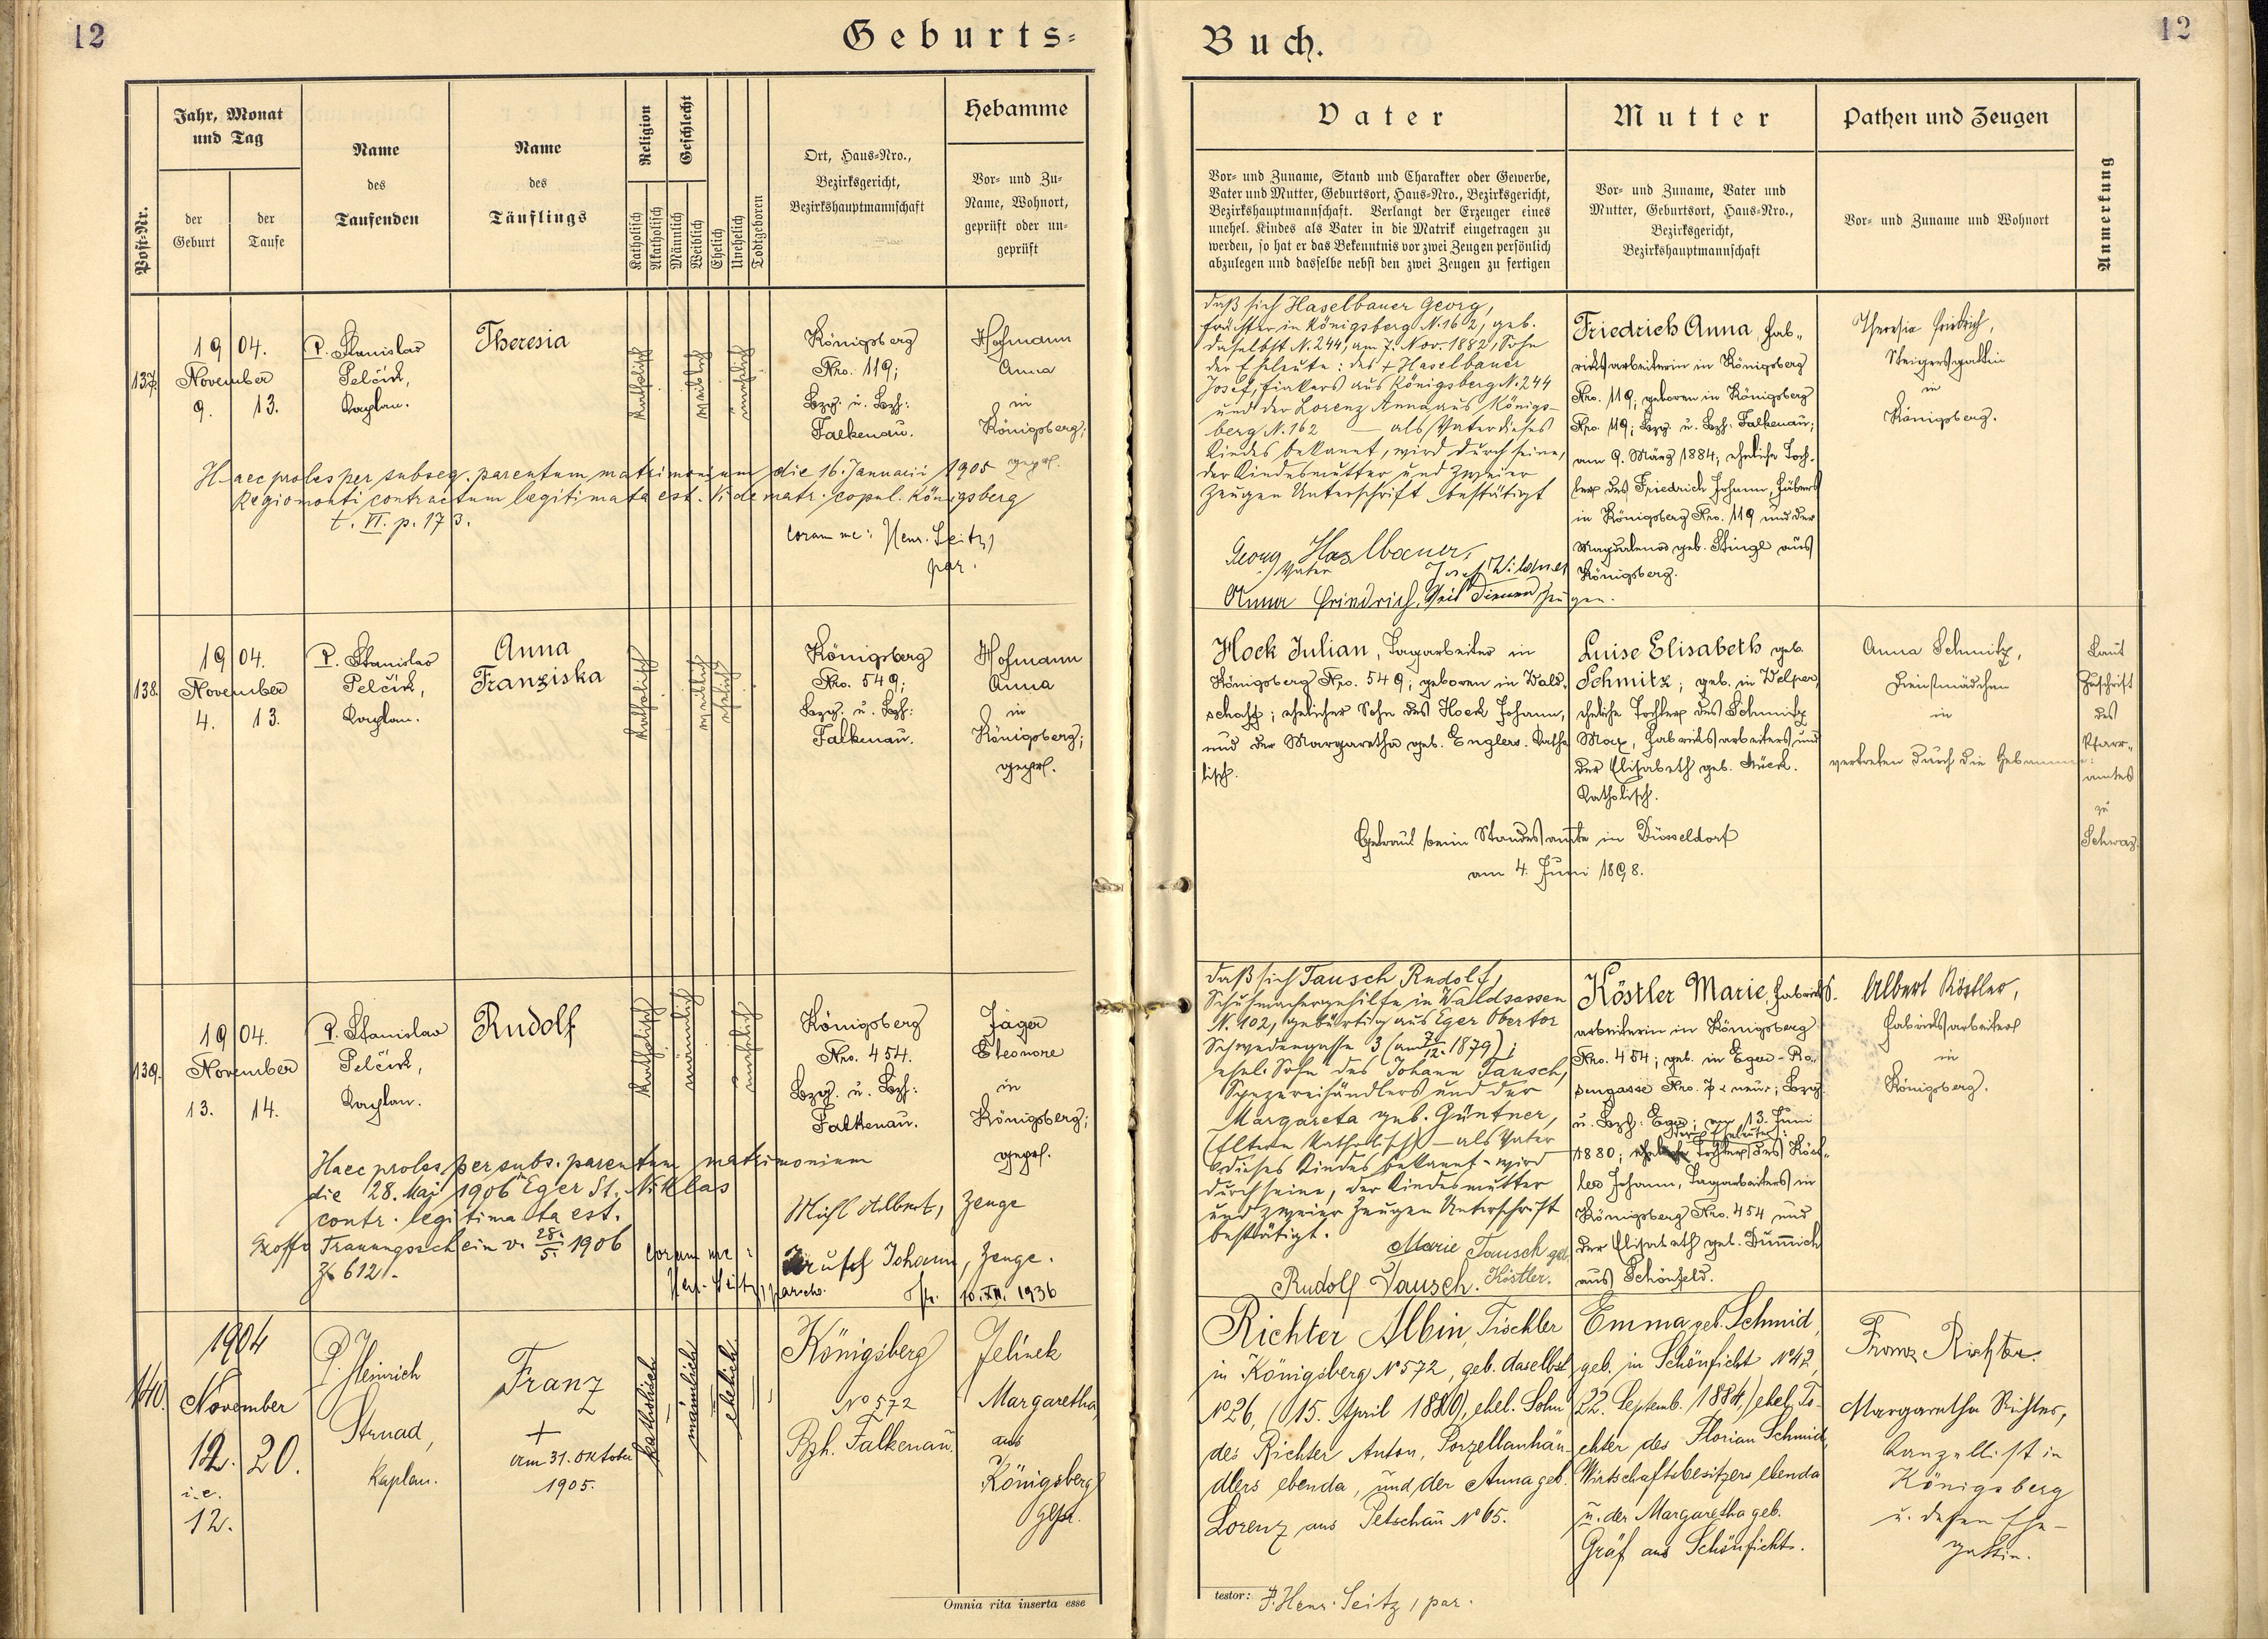 12
Geburts-
Buch.
12
Post-Nr.
Jahr, Monat
und Tag
der
Geburt
der
Taufe
Name
des
Taufenden
Name
des
Täuflings
Religion
Katholisch
Akatholisch
Geschlecht
Männlich
Weiblich
Ehelich
Unehelich
Todtgeboren
Ort, Haus-Nro.,
Bezirksgericht,
Bezirkshauptmannschaft
Hebamme
Vor- und Zu-
Name, Wohnort,
geprüft oder un-
geprüft
Vater
Vor- und Zuname, Stand und Charakter oder Gewerbe,
Vater und Mutter, Geburtsort, Haus-Nro., Bezirksgericht,
Bezirkshauptmannschaft. Verlangt der Erzeuger eines
unehel. Kindes als Vater in die Matrik eingetragen zu
werden, so hat er das Bekenntnis vor zwei Zeugen persönlich
abzulegen und dasselbe nebst den zwei Zeugen zu fertigen
Mutter
Vor- und Zuname, Vater und
Mutter, Geburtsort, Haus-Nro.,
Bezirksgericht,
Bezirkshauptmannschaft
Pathen und Zeugen
Vor- und Zuname und Wohnort
Anmerkung
137.
1904.
November
9. 13.
P. Stanislav
Pelčík,
Kaplan.
Theresia
katholisch
weiblich
unehelich
Königsberg
Nro. 119;
Bzg. u. Bzh:
Falkenau.
Hofmann
Anna
in
Königsberg;
gepr.
Haec proles per subseq. parentum matrimonium die 16. Januarii 1905
Regiomonti contractum legitimata est. Vide matr. copul. Königsberg
t. VI. p. 173.
coram me: Henr. Seitz,
par.
daß sich Haselbauer Georg,
in Königsberg N. 162, geb.
daselbst N. 244, am 7. Nov. 1882, Sohn
der Eheleute: des + Haselbauer
Josef, Fiakers aus Königsberg N. 244
und der Lorenz Anna aus Königs-
berg N. 162 — als Vater dieses
Kindes bekannt, wird durch seine,
der Kindesmutter und zweier
Zeugen Unterschrift bestätigt
Georg Haslbauer,
Vater
Josef
Anna Friedrich, Zeugen.
Friedrich Anna, Fab-
riksarbeiterin in Königsberg
Nro. 119, geboren in Königsberg
Nro. 119; Bzg. u. Bzh: Falkenau;
am 9. März 1884; eheliche Toch-
ter des Friedrich Johann,
in Königsberg Nro. 119 und der
Magdalena geb. Stingl aus
Königsberg.
Theresia Friedrich,
Steigersgattin
in
Königsberg.
138.
1904.
November
4. 13.
P. Stanislav
Pelčík,
Kaplan.
Anna
Franziska
katholisch
weiblich
ehelich
Königsberg
Nro. 549;
Bzg. u. Bzh:
Falkenau.
Hofmann
Anna
in
Königsberg;
gepr.
Hock Julian, Tagarbeiter in
Königsberg Nro. 549; geboren in Wald-
schaff; ehelicher Sohn des Hock Johann,
und der Margaretha geb. Englert. Katho
lisch.
Luise Elisabeth geb.
Schmitz; geb. in Velper,
eheliche Tochter des Schmitz
Max, Fabriksarbeiters und
der Elisabeth geb. Stück.
Katholisch.
Getraut beim Standesamte in Düsseldorf
am 4. Juni 1898.
Anna Schmitz,
Dienstmädchen
in
vertreten durch die Hebamme.
Laut
Zuschrift
des
Pfarr-
amtes
zu
Schwaz.
139.
1904.
November
13. 14.
P. Stanislav
Pelčík,
Kaplan.
Rudolf
katholisch
männlich
unehelich
Königsberg
Nro. 454.
Bzg. u. Bzh:
Falkenau.
Jäger
Eleonore
in
Königsberg;
gepr.
Haec proles per subs. parentum matrimonium
die 28. Mai 1906 in Eger St. Niklas
contr. legitimata est.
Exoffo Trauungsschein v. 28./5. 1906
Z. 612.
coram me:
Henr. Seitz, parocho.
Michl Albert, Zeuge
Johann, Zeuge.
10. XII. 1936
daß sich Tausch Rudolf,
Schuhmachergehilfe in Waldsassen
N. 102, gebürtig aus Eger Obertor
Schwedengasse 3 (am 7/12. 1879);
ehel. Sohn des Johann Tausch,
Spezereihändlers und der
Margareta geb. Güntner,
(Eltern Katholisch) — als Vater
dieses Kindes bekannt - wird
durch seine, der Kindesmutter
und zweier Zeugen Unterschrift
bestätigt.
Marie Tausch geb.
Köstler.
Rudolf Tausch.
Köstler Marie, Fabriks-
arbeiterin in Königsberg
Nro. 454; geb. in Eger - Ro-
sengasse Nro. 7 neu; Bzg.
u. Bzh: Eger; am 13. Juni
1880; der Eheleute: Tochter des Köst-
ler Johann, Tagarbeiters in
Königsberg Nro. 454 und
der Elisabeth geb. Dümmich
aus Schönfeld.
Albert Köstler,
Fabriksarbeiter
in
Königsberg.
140.
1904
November
12. 20.
i. e.
12.
P. Heinrich
Strnad,
Kaplan.
Franz
+
am 31. Oktober
1905.
katholisch
männlich
ehelich
Königsberg
No 572
Bzh. Falkenau.
Jelinek
Margaretha,
aus
Königsberg
gepr.
Richter Albin, Tischler
in Königsberg No 572, geb. daselbst
No 26, (15. April 1880), ehel. Sohn
des Richter Anton, Porzellanhän
dlers ebenda, und der Anna geb.
Lorenz aus Petschau No 65.
Emma geb. Schmid,
geb. in Schönficht No 42,
22. Septemb. 1884,) ehel. To-
chter des Florian Schmid,
Wirtschaftsbesitzers ebenda
u. der Margaretha geb.
Gräf aus Schönficht.
Franz Richter.
Margaretha Richter,
Kanzellist in
Königsberg
u. dessen Ehe-
gattin.
Omnia rita inserta esse
testor: P. Henr. Seitz, par.